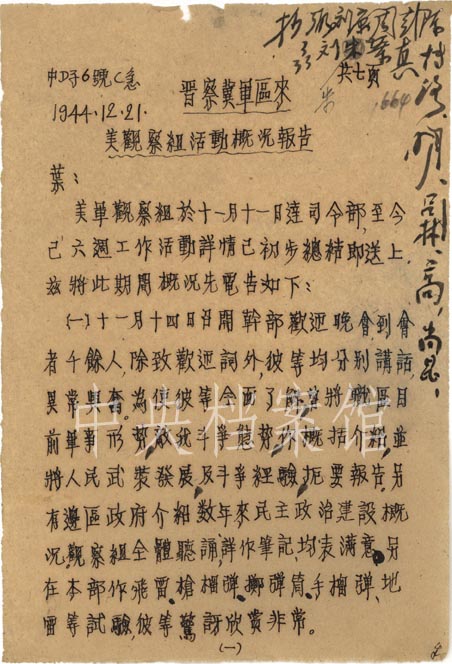 1944.12.21.
晋察冀軍區來
共七頁
664
美觀察組活動概況報告
葉：
美軍觀察組於十一月十一日達司令部，至今
已六週工作活動詳情已初步總結即送上，
兹將此期間概況先電告如下：
(一)十一月十四日召開幹部歡迎晚會，到會
者千餘人，除致歡迎詞外，彼等均分别講話，
異常興奮，為使彼等全面了解，首將戰區目
前軍事形勢敵我斗爭態勢，作概括介紹，並
將人民武裝發展及斗爭經驗扼要報告，另
有邊區政府介紹数年來民主政治建設概
況，觀察組全體聽誦，詳作筆記，均表滿意，另
在本部作飛雷、槍榴彈、擲彈筒、手榴彈、地
雷等試驗，彼等驚訝欣賞非常。
(一)
中央档案馆